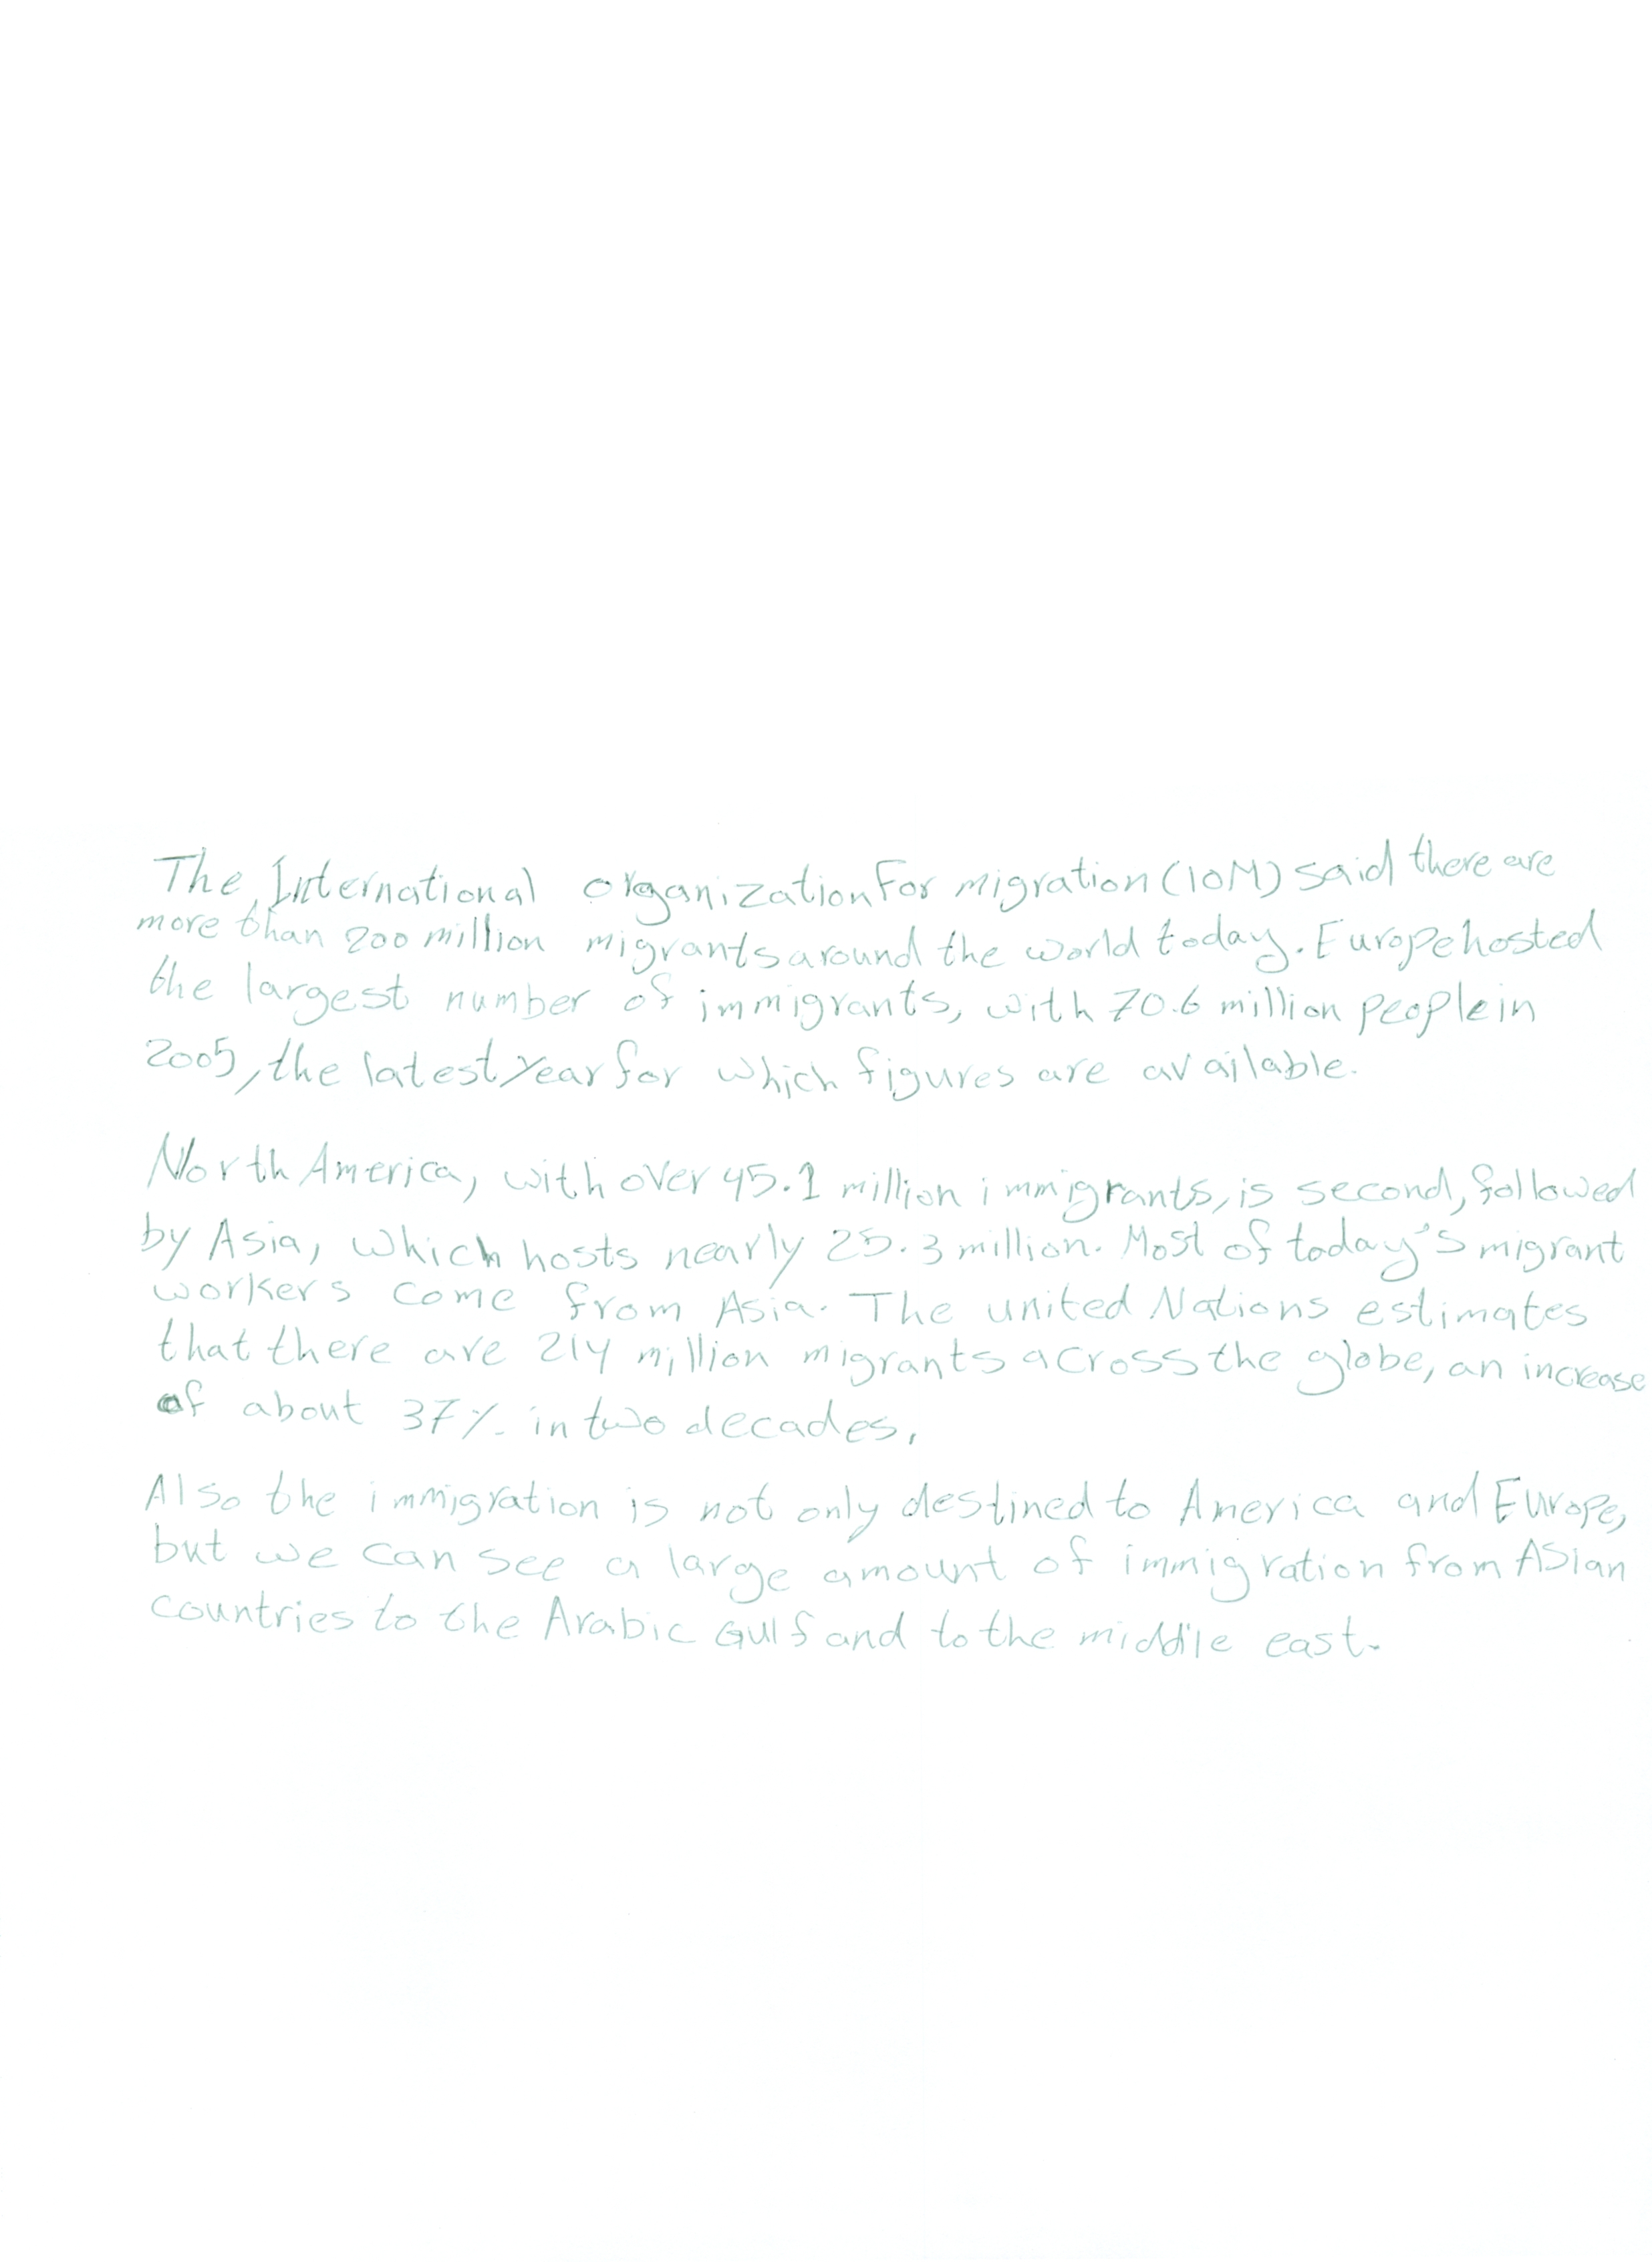 The International organization For migration (IOM) said there are
more than 200 million migrants around the world today. Europe hosted
the largest number of immigrants, with 70.6 million people in
2005, the latest year for which figures are available.
North America, with over 45.1 million immigrants, is second, followed
by Asia, which hosts nearly 25.3 million. Most of today's migrant
workers come from Asia. The united Nations estimates
that there are 214 million migrants across the globe, an increase
of about 37% in two decades.
Also the immigration is not only destined to America and Europe,
but we can see a large amount of immigration from ASian
countries to the Arabic Gulf and to the middle east.